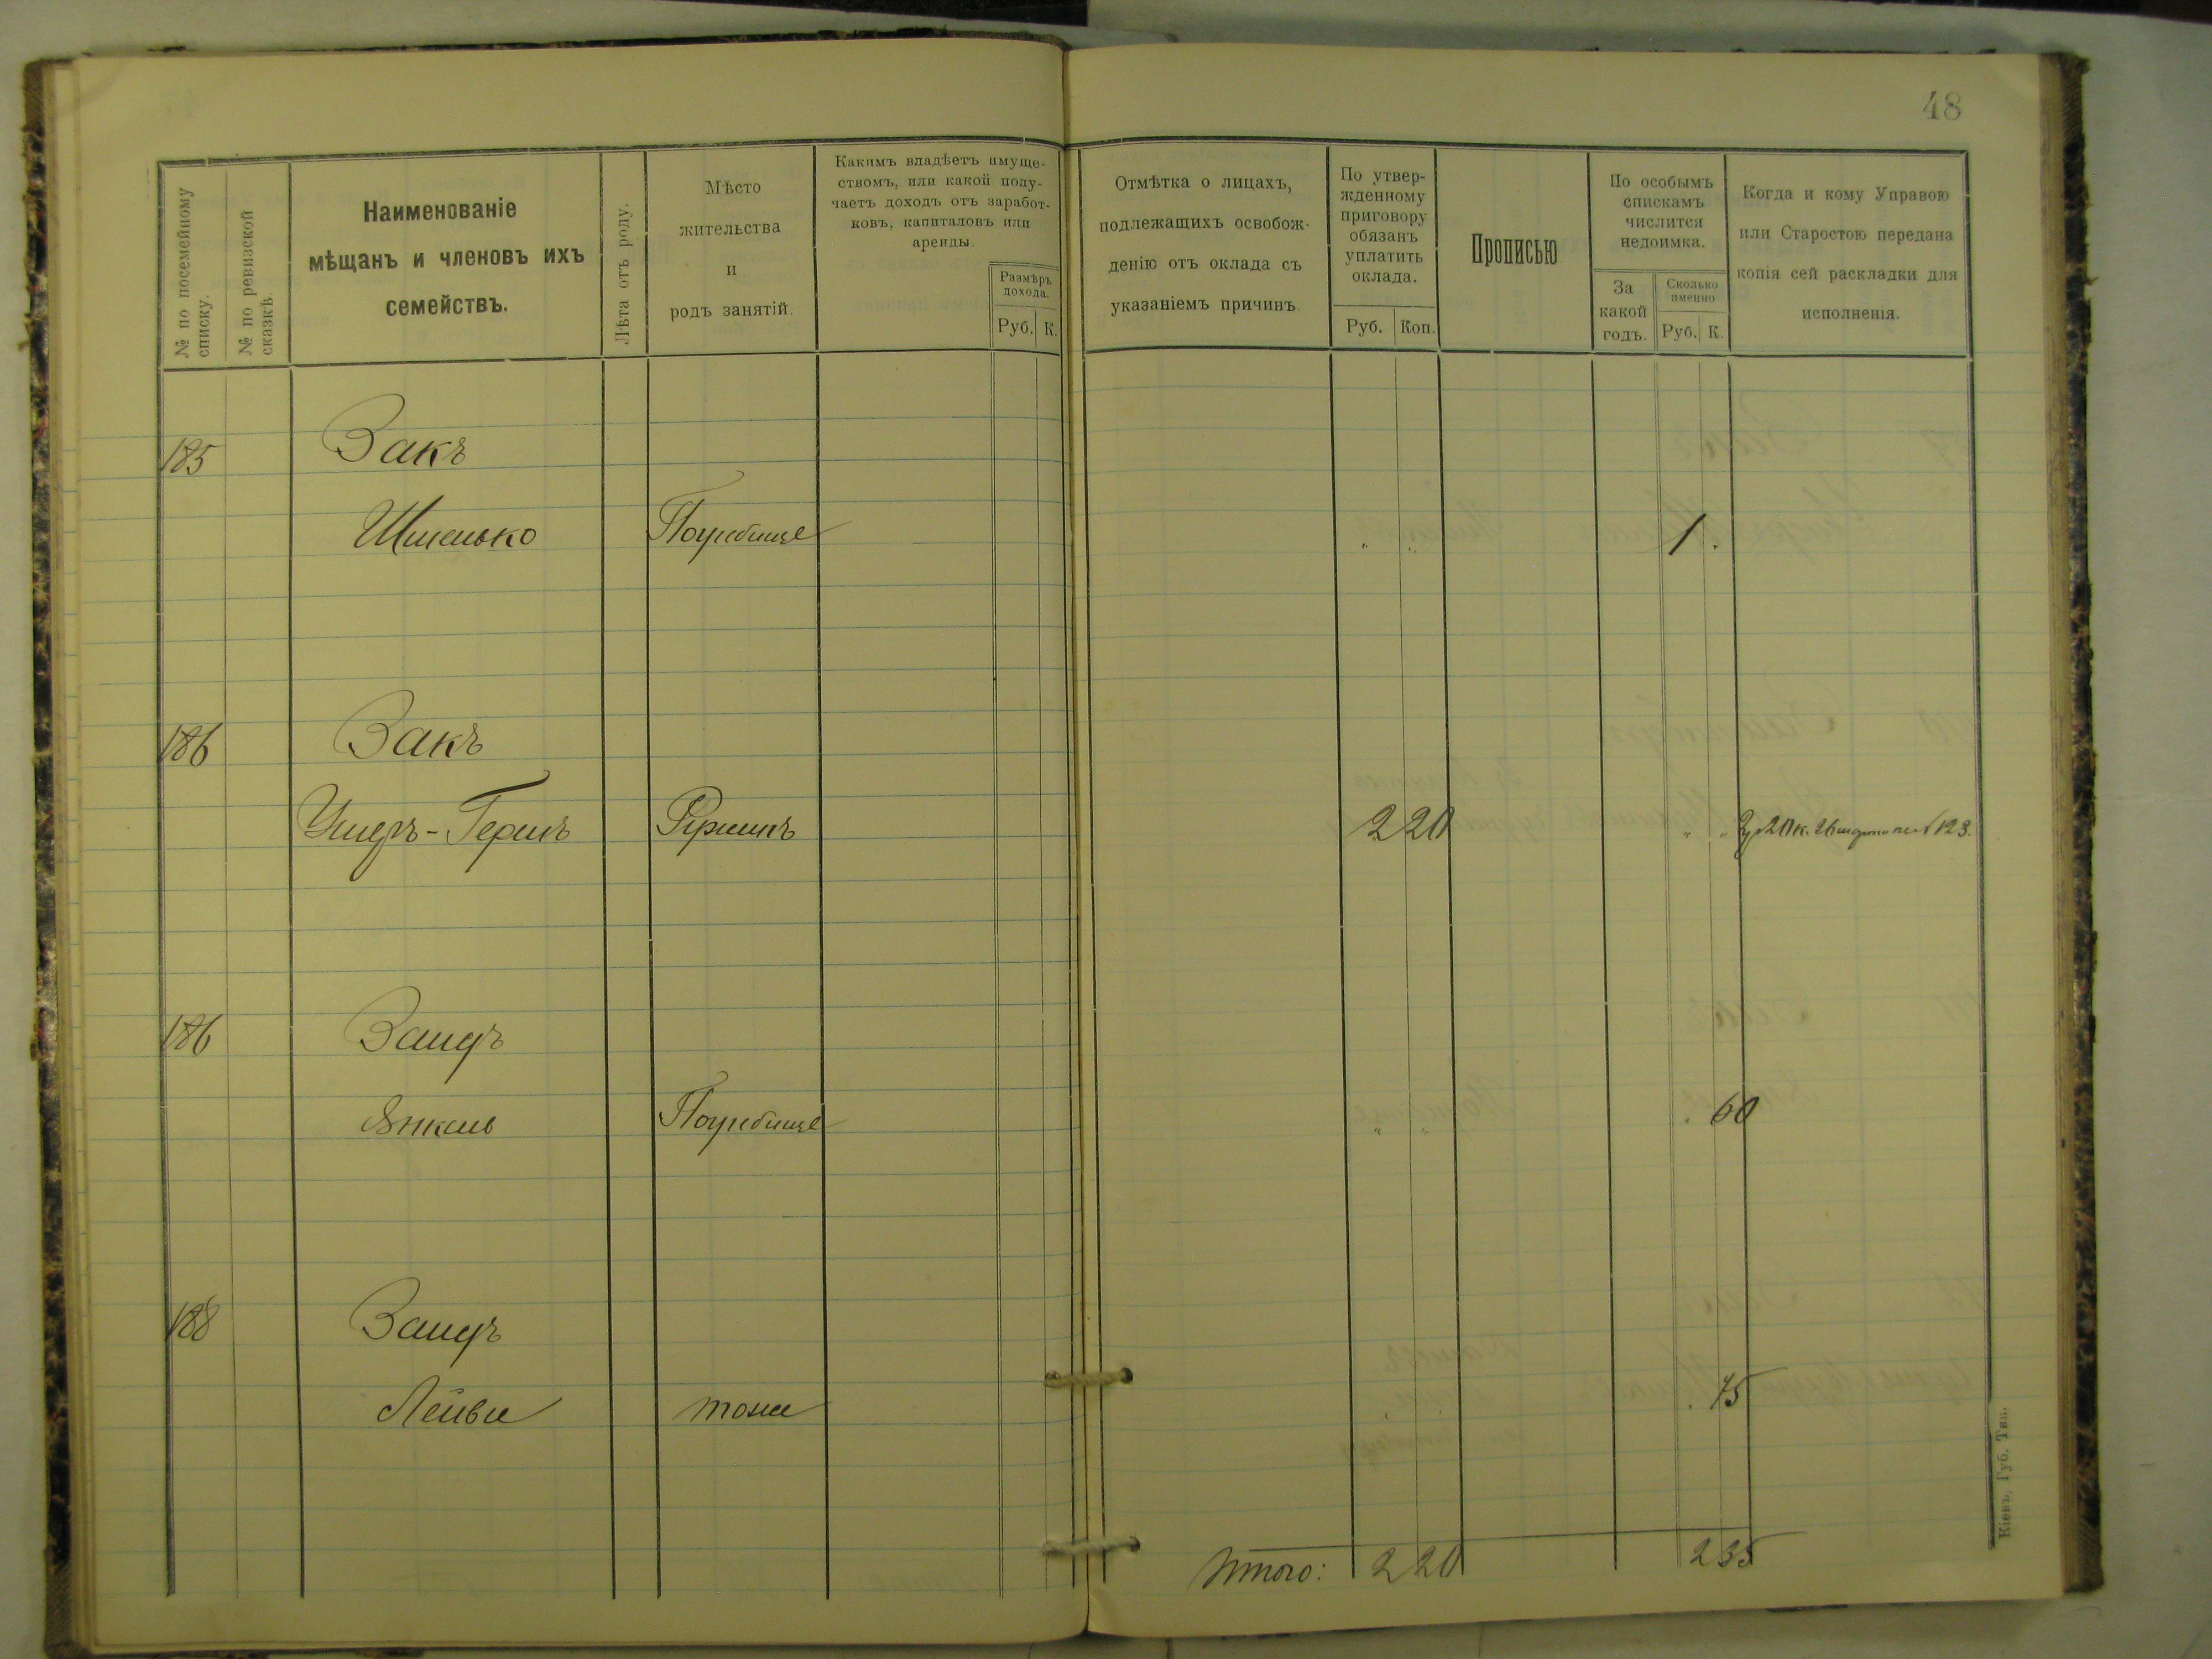 48
№ по посемейному списку.
№ по ревизской сказкѣ.
Наименованіе
мѣщанъ и членовъ ихъ
семействъ.
Лѣта отъ роду.
Мѣсто
жительства
и
родъ занятій.
Какимъ владѣетъ имуще-
ствомъ, или какой полу-
чаетъ доходъ отъ заработ-
ковъ, капиталовъ или
аренды.
Размѣръ
дохода.
Руб. К.
Отмѣтка о лицахъ,
подлежащихъ освобож-
денію отъ оклада съ
указаніемъ причинъ.
По утвер-
жденному
приговору
обязанъ
уплатить
оклада.
Руб. Коп.
Прописью
По особымъ
спискамъ
числится
недоимка.
За
какой
годъ.
Сколько
именно
Руб. К.
Когда и кому Управою
или Старостою передана
копія сей раскладки для
исполненія.
185 Закъ
Погребище " " 1 .
186 Закъ
Ушеръ-Гершъ 2 20 " " 2р 20 к. 123.
186 Зайдъ
Янкель Погребище " " . 60
188 Зайдъ
Лейба тоже . 75
Итого: 2 20 2 35
Кіевъ, Губ. Тип.